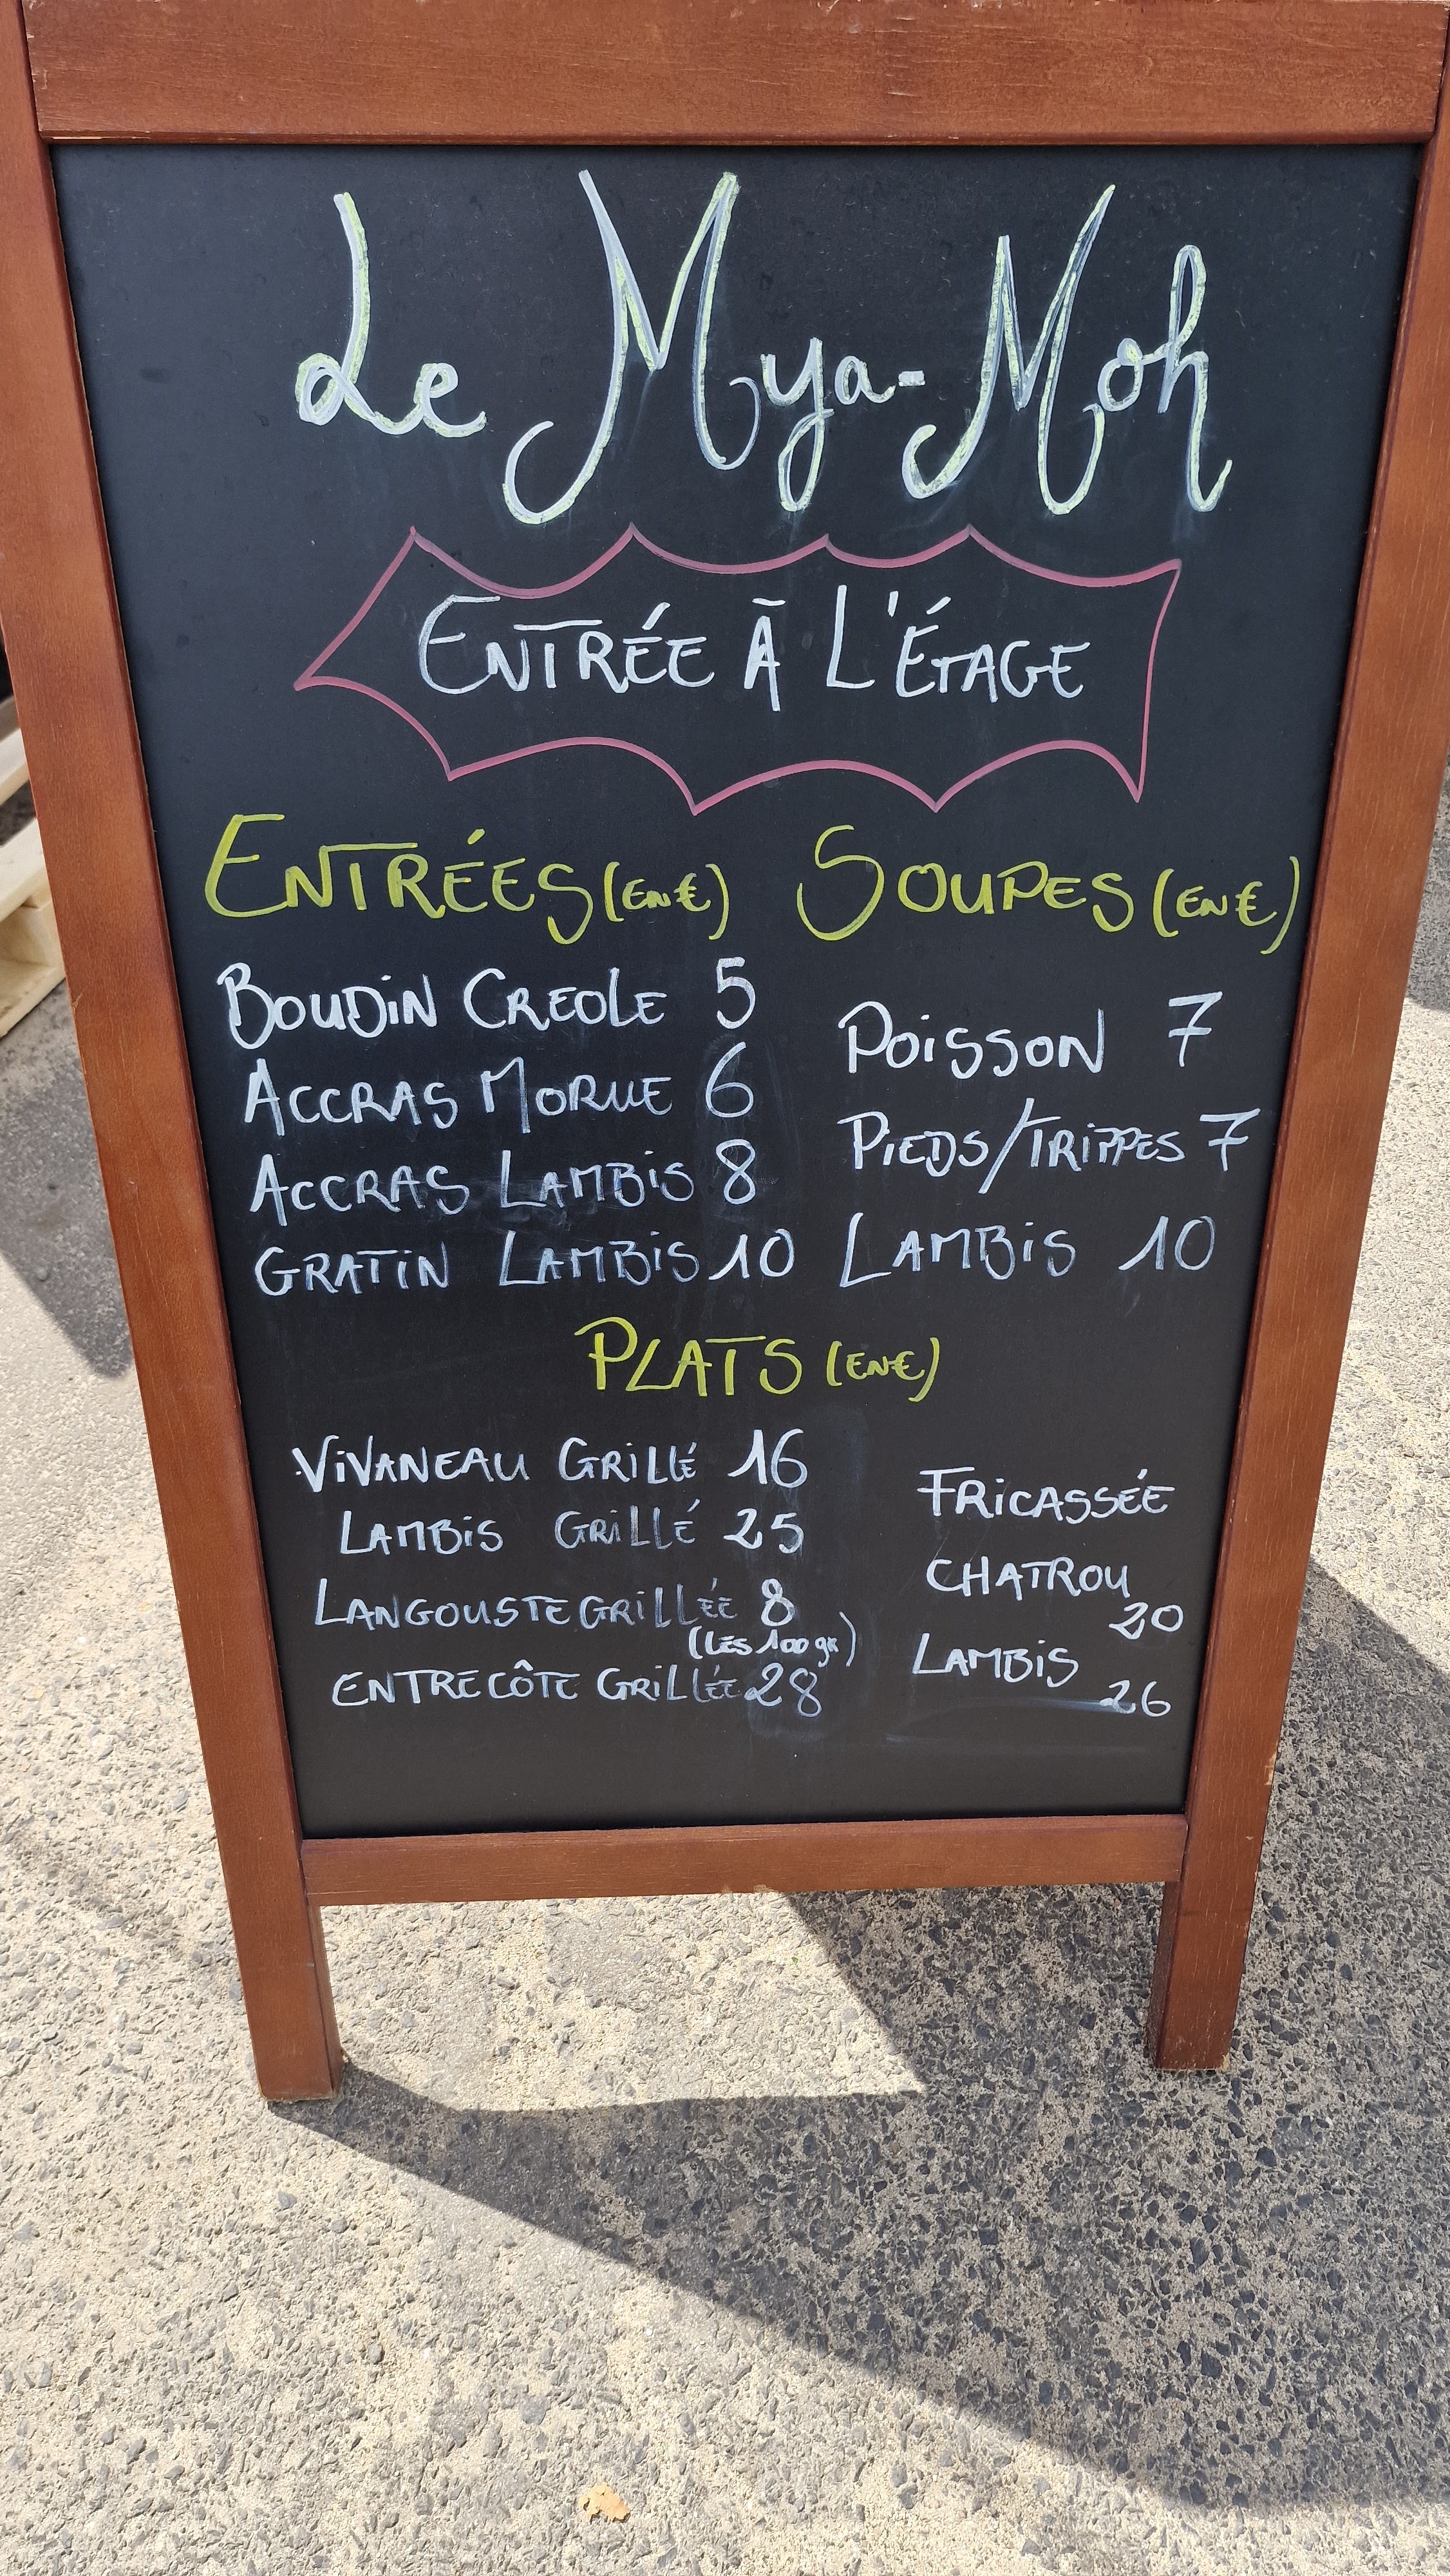 Le Mya-Moh
ENTRÉE À L'ÉTAGE
ENTRÉES (EN €)
BOUDIN CREOLE 5
ACCRAS MORUE 6
ACCRAS LAMBIS 8
GRATIN LAMBIS 10
SOUPES (EN €)
POISSON 7
PIEDS/TRIPPES 7
LAMBIS 10
PLATS (EN €)
VIVANEAU GRILLÉ 16
LAMBIS GRILLÉ 25
LANGOUSTE GRILLÉE 8
(LES 100 gr)
ENTRECÔTE GRILLÉE 28
FRICASSÉE
CHATROU
20
LAMBIS
26